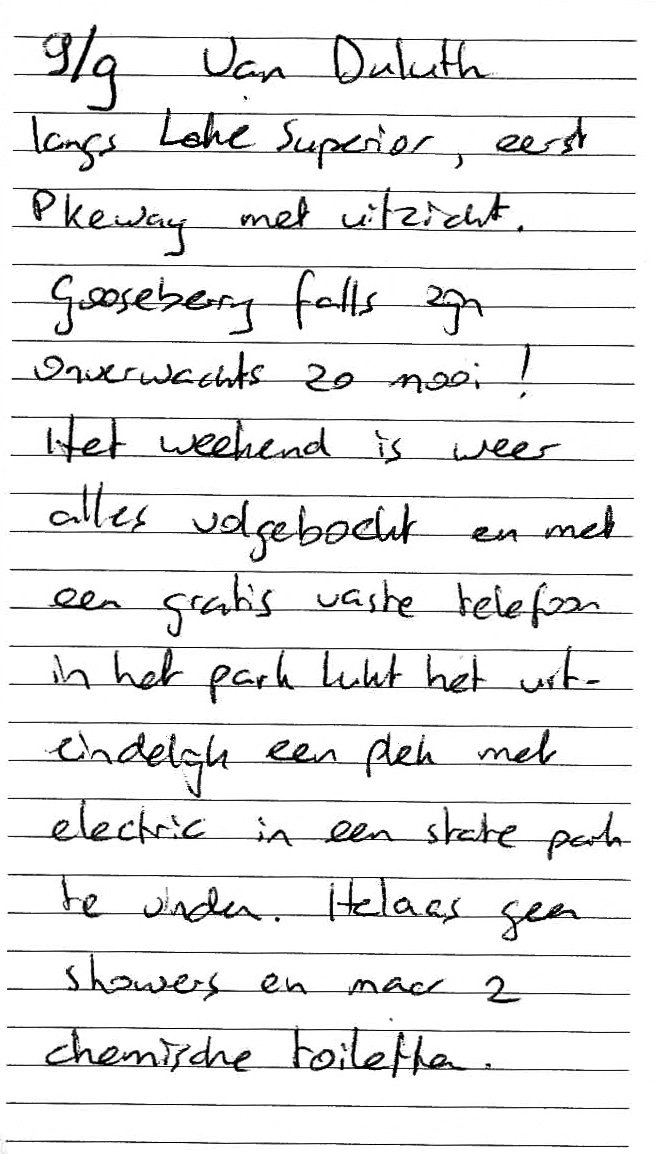 9/9 Van Duluth
langs Lake Superior, eerst
Pkeway met uitzicht.
Gooseberry falls zijn
onverwachts zo mooi!
Het weekend is weer
alles volgeboekt en met
een gratis vaste telefoon
in het park lukt het uit-
eindelijk een plek met
electric in een state park
te vinden. Helaas geen
showers en maar 2
chemische toiletten.